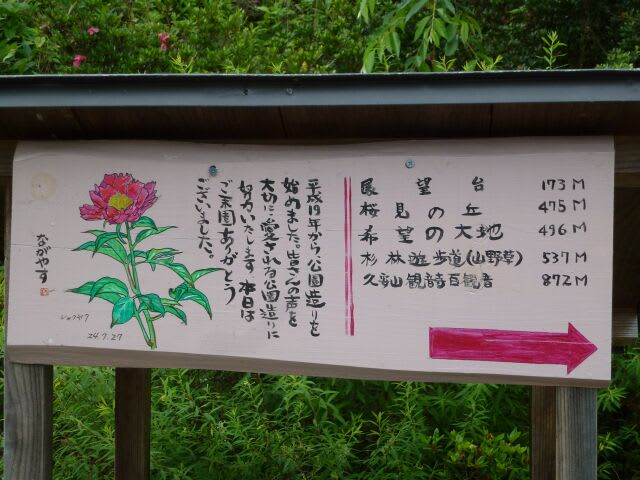 展望台 173M
桜見の丘 475M
希望の大地 496M
杉林遊歩道(山野草) 537M
久谷山観音百観音 872M
平成19年から、公園造りを
始めました。皆さんの声を
大切に、愛される公園造りに
努力いたします 本日は
ご来園ありがとう
ございました。
ながやす
シャクヤク
24.7.27